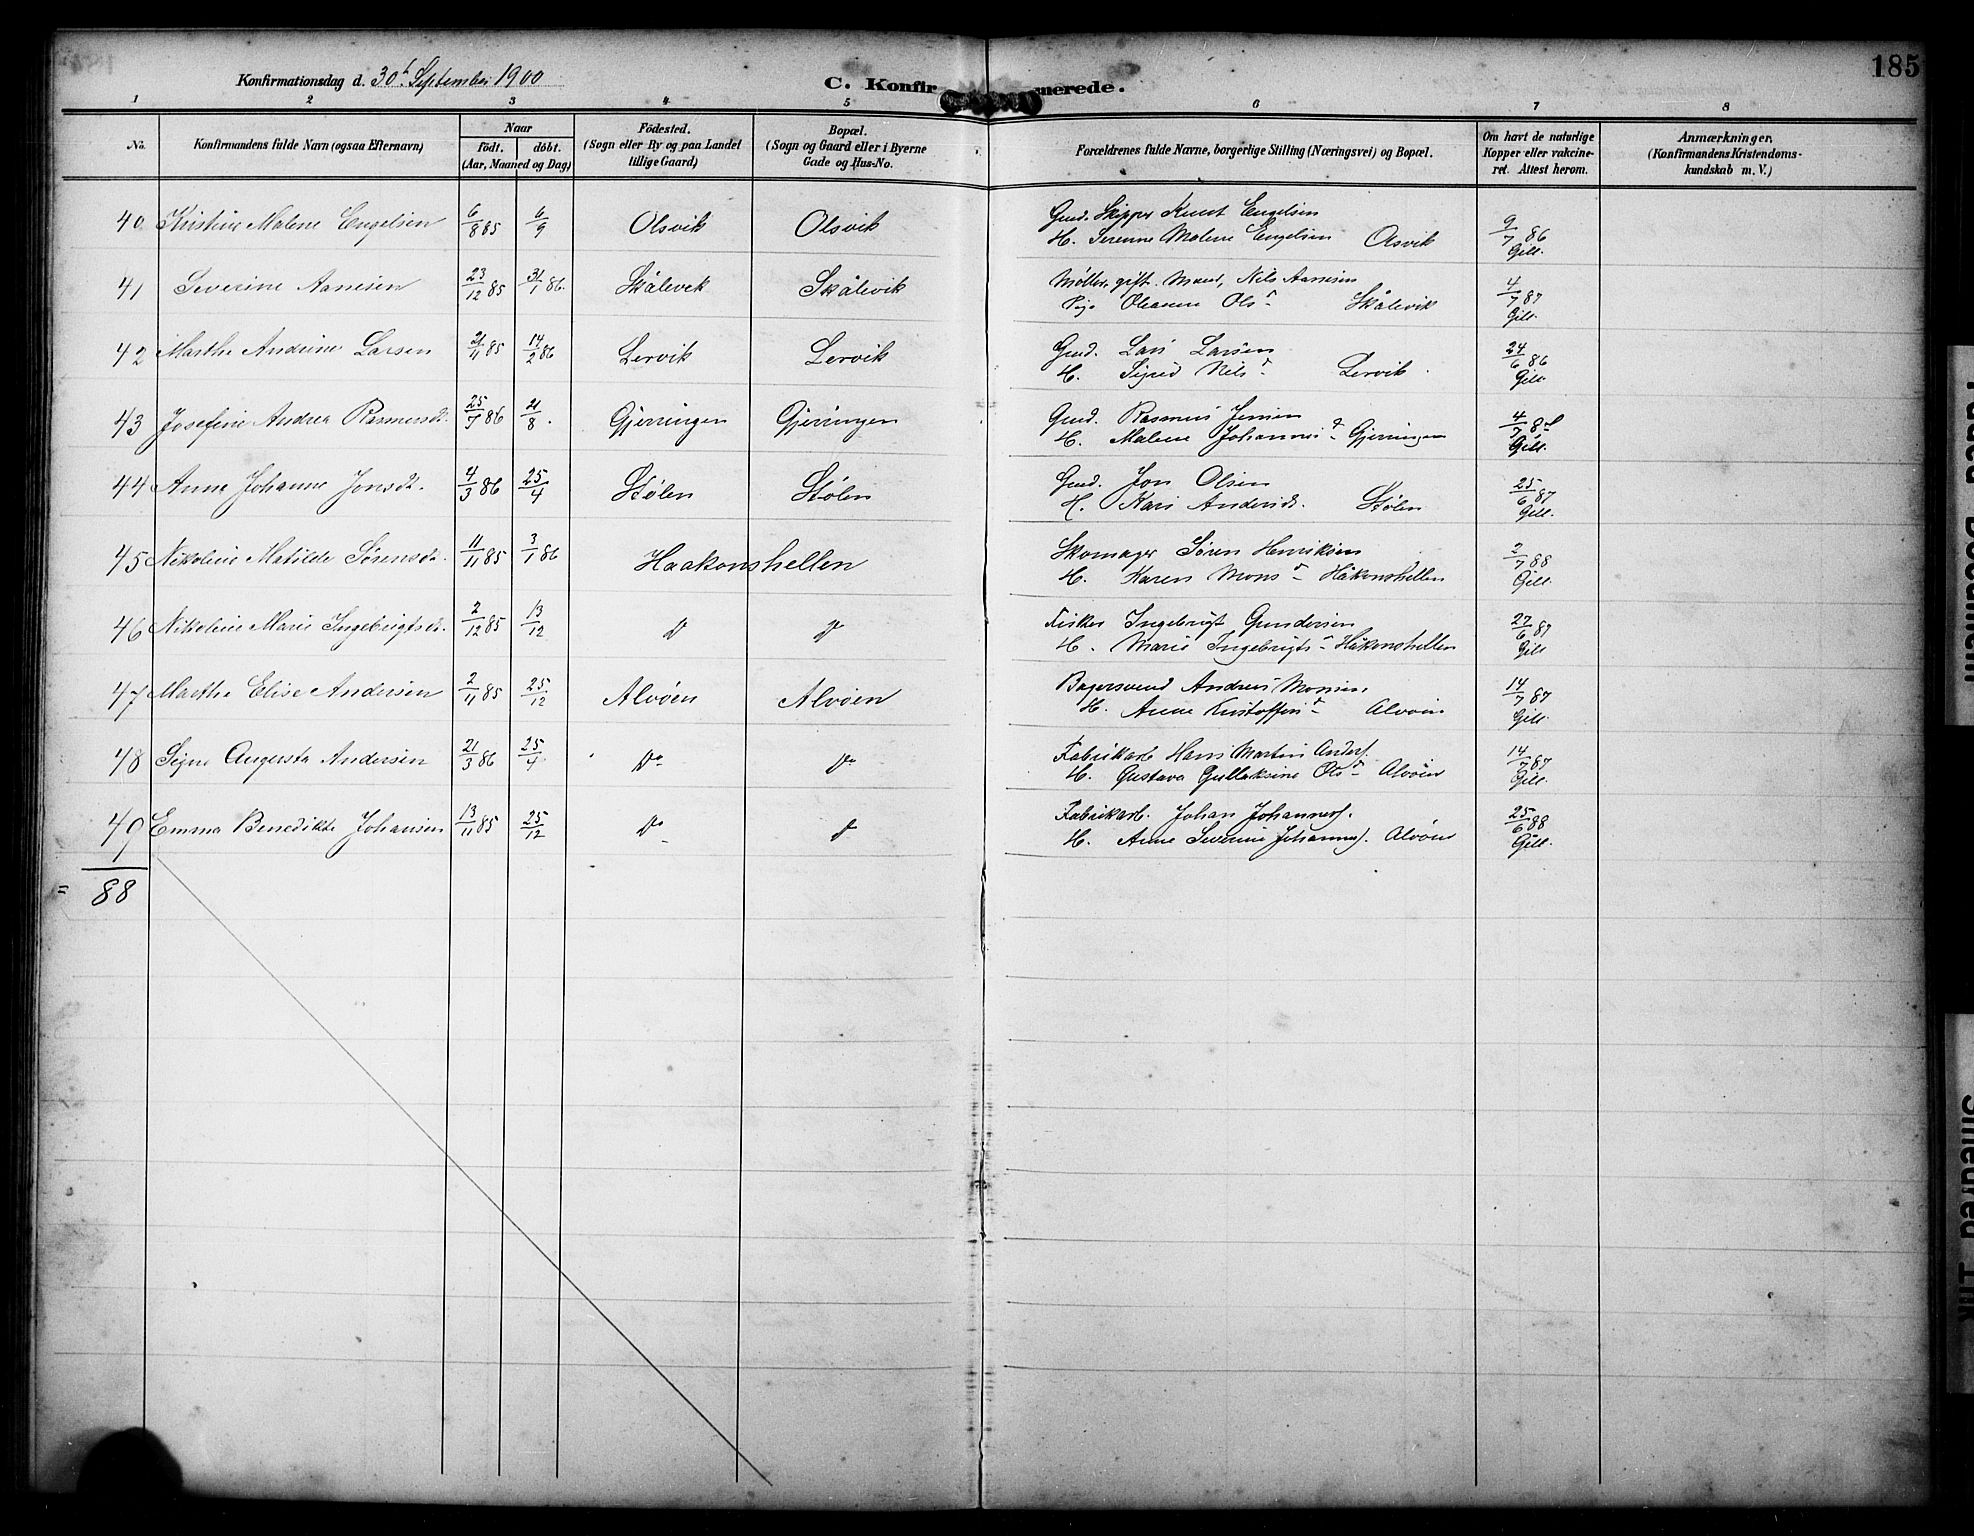 185
Konfirmationsdag d. 30t September 1900
C. Konfirmerede.
1 2 3 4 5 6 7 8
No. Konfirmandens fulde Navn (ogsaa Efternavn) Naar Födt. döbt. (Aar, Maaned og Dag) Födested. (Sogn eller By og paa Landet tillige Gaard) Bopæl. (Sogn og Gaard eller i Byerne Gade og Hus-No. Forældrenes fulde Navne, borgerlige Stilling (Næringsvei) og Bopæl. Om havt de naturlige Kopper eller vakcineret. Attest herom. Anmærkninger, (Konfirmandens Kristendomskundskab m. V.)
40 Kristine Malene Engelsen 6/8 85 6/9 Olsvik Olsvik Gmd. Skipper Knut Engelsen 9/7 86
H. Serenne Malene Engelsen Olsvik Gill.
41 Severine Aanesen 23/12 85 31/1 86. Skålevik Skålevik Møller, gift Mand, Nils Aanesen 4/7 87
Pige Oleanne Olsd Skålevik Gill.
42 Marthe Andrine Larsen 21/11 85 14/2 86 Lervik Lervik Gmd. Lars Larsen 24/6 86
H. Sigrid Nilsd Lervik. Gill.
43 Josefine Andrea Rasmusdt. 25/7 86 21/8. Gjerringen Gjerringen Gmd. Rasmus Jensen 4/7
H. Malene Johannesd Gjerringen Gill.
44 Anna Johanne Jonsdt. 4/3 86 25/4 Stølen Stølen Gmd. Jon Olsen 25/6 87
H. Kari Andersdt. Stølen Gill.
45 Nikoline Matilde Sørensdt. 11/11 85 3/1 86 Haakonshellen Skomager Søren Henriksen 2/7 88
H. Karen Monsd Håkonshellen Gill.
46 Nikoline Marie Ingebrigtsdt. 2/12 85 13/12 do do Fisker Ingebrigt Gundersen 27/6 87
H. Marie Ingebrigtsd Håkonshellen Gill
47 Marthe Elise Andersen 2/11 85 25/12 Alvøen Alvøen Bagersvend Andreas Monsen. 14/7 87
H. Anne Kristoffersd Alvøen Gill.
48 Signe Augusta Andersen 21/3 86 25/4. do do Fabrikarb Hans Martin Anders. 14/7 87
H. Gustava Gullaksine Olsd Alvøen Gill.
49 Emma Benedikte Johansen 13/11 85 25/12 do do Fabrikarb. Johan Johanness. 25/6 88
H. Anne Severine Johanness. Alvøen Gill.
= 88